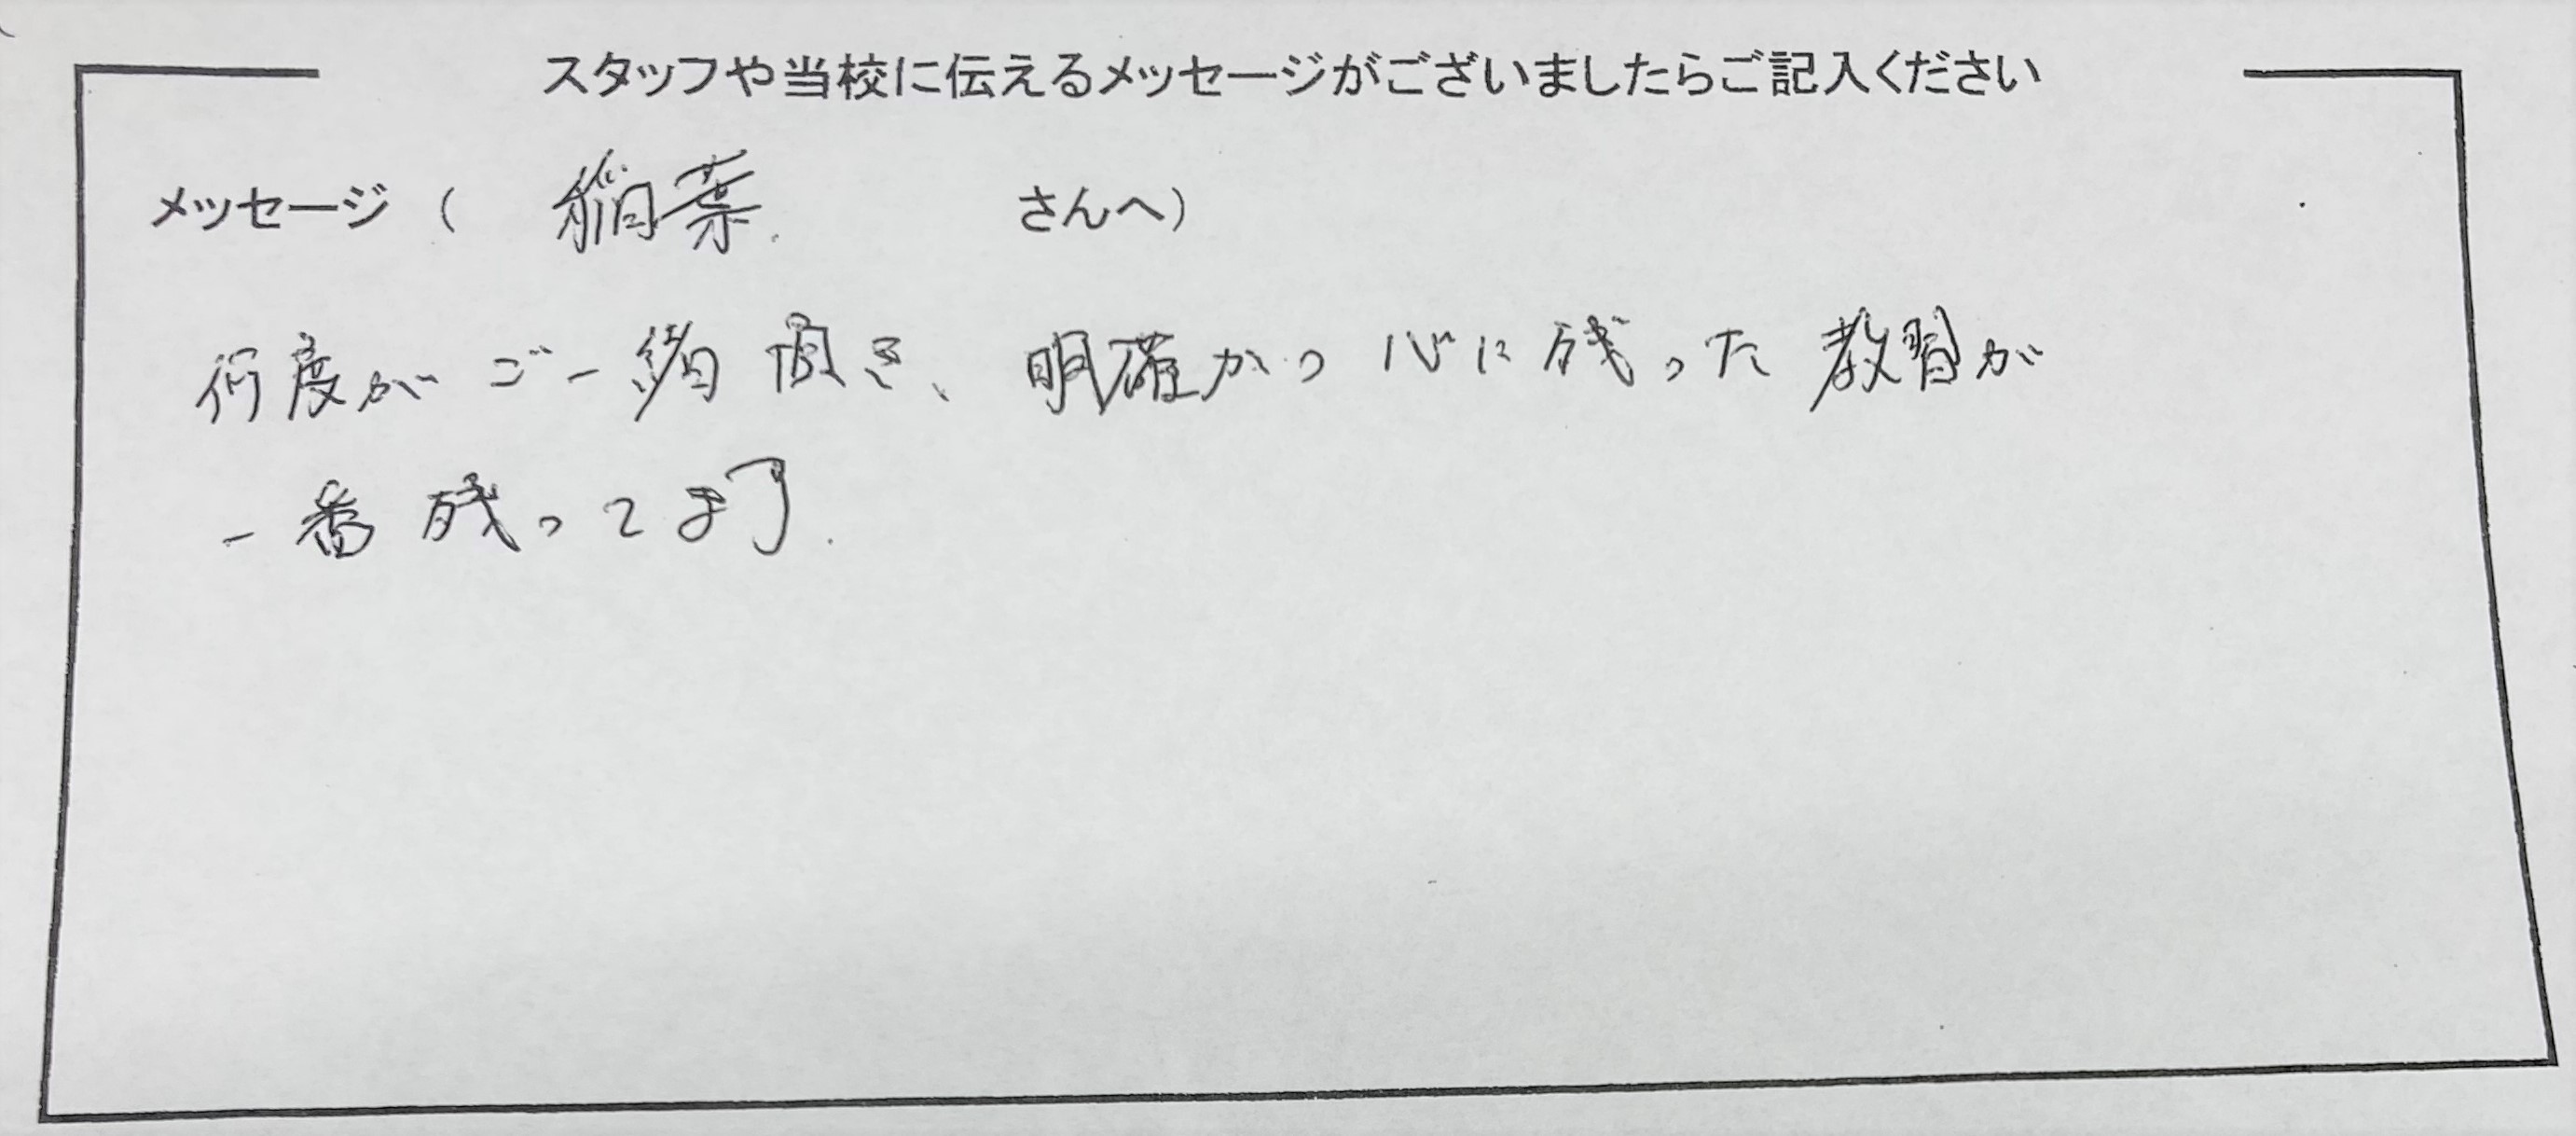 スタッフや当校に伝えるメッセージがございましたらご記入ください
メッセージ（ 稲葉. さんへ）
何度がご一緒頂き、明確かつ心に残った教習が
一番残ってます.